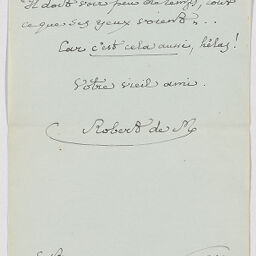 Il doit voir peu de temps, tout
ce que ses yeux voient...
Car c'est cela aussi, hélas!
Votre vieil ami.
Robert de M